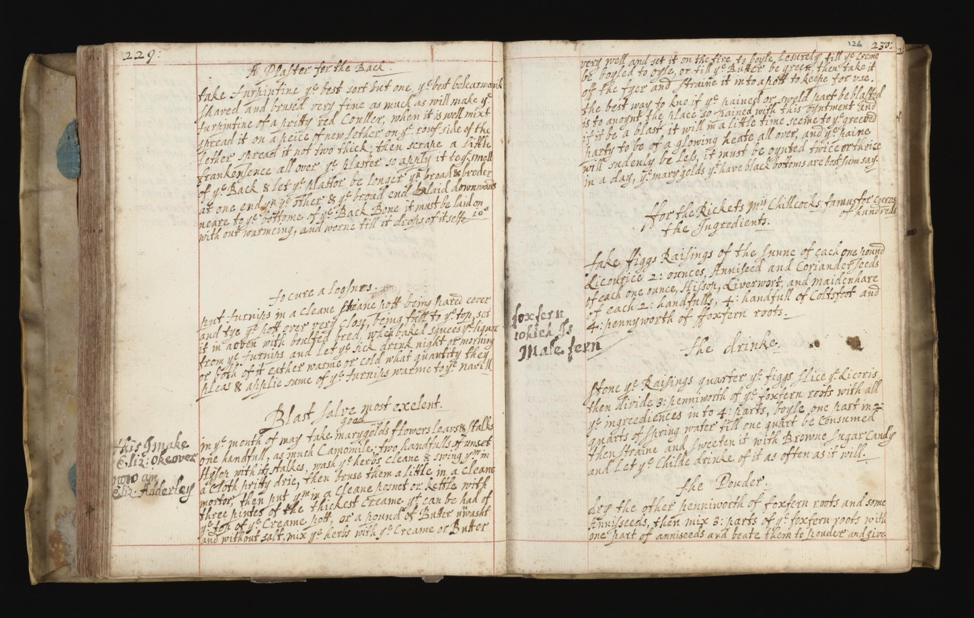 229:
A Plaster for the Back
take turpintine ye best sort but one, ye best
shaved and brused very fine as much as will make ye
turpintine of a pritty red Couller, when it is well mixt
spread it on a peice of new lether on ye rouf side of the
lether spread it not two thick; then scrape a little
frankonsence all over ye plaster so apply it to ye small
of ye Back & let ye plaster be longer yn broad & broder
at one end yn ye other & ye broad end laid downwards
neare to ye bottome of ye Back Bone it must be laid on
with out warmeing, and worne till it drops of it selfe
to cure a
put turnips in a cleane pott being pared cover
and tye ye pott over very close, being full to ye top, set
it in a oven with bread, when baked squees ye liquor
from ye turnips and let ye sick drink night or morning
or both of it eather warme or cold what quantity they
pleas & applie some of ye turnips warme to ye
Blast salve most exelent.
good
in ye month of may take marygolds flowers leavs & stalks
one handfull, as much Camomile, two handfulls of unset
Hysop with its stalkes, wash ye herbs cleane & swing ym in
a cloth pritty drie, then bruse them a little in a cleane
mortor, then put ym in a cleane posnet or kettle with
three pintes of the thickest Creame yt can be had of
ye top of ye Creame pott, or a pound of Butter unwasht
and without salt, mix ye herbs with ye Creame or Butter
this I make
Eliz: Okeover
now am
Eliz: Adderley
126
230:
very well and set it on the fire to boyle Lesurely till ye Creme
be boyled to oyle, or till ye Butter be green then take it
off the fyer and straine it into a pott to keepe for use.
the best way to know if ye pained or swold part be blasted
is to anoynt the place so pained with this oyntment and
if it be a blast it will in a little time seeme to ye greevd
party to be of a glowing heate all over, and ye paine
will sudenly be less, it must be oynted twice or thrice
in a day, ye mary golds yt have black bottoms are best sum say.
ffor the Rickets mrs Chillcocks, famus for cureing
of hundreds
the Ingredients.
take figgs Raisings of the sunne of each one pound
Licorice 2: ounces, Anniseed and Coriander seeds
of each one ounce, Hisop, Liverwort, and maidenhare
of each 2: handfulls, 4: handfull of Coltsfot and
4: pennyworth of ffoxfern roots.
foxfern
which Is
Male fern
the drinke.
Stone ye Raisings quarter ye figgs slice ye licoris
then divide 3: penniworth of ye foxfern roots with all
ye ingrediences in to 4: parts, boyle one part in 2
quarts of spring water till one quart be consumed
then straine and sweeten it with Browne Sugar Candy
and Let ye Childe drinke of it as often as it will.
the Pouder.
drey the other penniworth of foxfern roots and some
Anniseeds, then mix 3: parts of ye foxfern roots with
one part of anniseeds and beate them to pouder and give